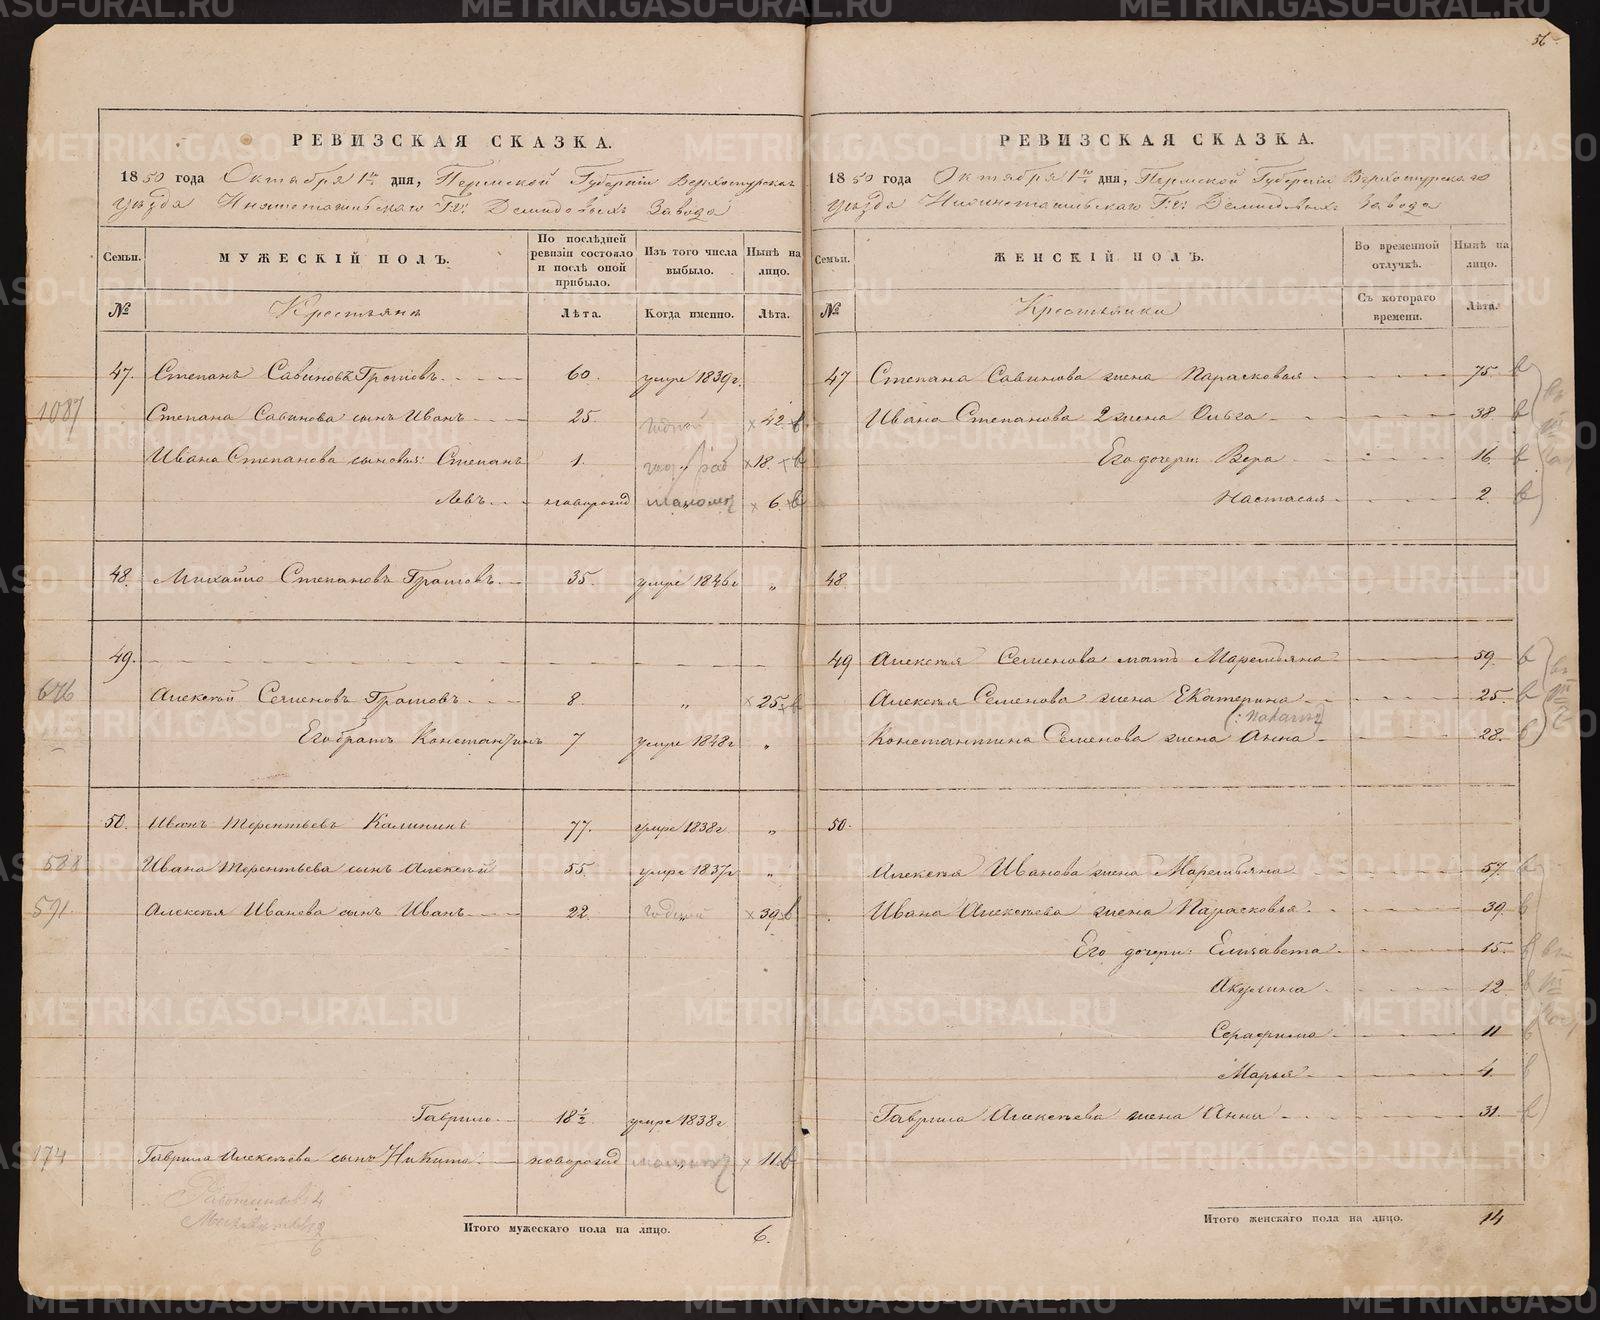 56
РЕВИЗСКАЯ СКАЗКА.
1850 года Октября 1го дня, Пермской Губернiи Верхотурскаго
уѣзда Нижнетагильскаго Г.г. Демидовыхъ Завода
Семьи. МУЖЕСКІЙ ПОЛЪ. По послѣдней ревизіи состояло и послѣ оной прибыло. Изъ того числа выбыло. Нынѣ на лицо.
№ Крестьяне Лѣта. Когда именно. Лѣта.
47. Степанъ Савиновъ Громовъ 60. умре 1839г.
1087 Степана Савинова сынъ Иванъ 25. годный × 42. в
Ивана Степанова сыновья: Степанъ 1. „ раб × 18. в
Левъ новорожд „ × 6. в
48. Михайло Степановъ Громовъ 35. умре 1846г „
49.
676 Алексѣй Семеновъ Громовъ 8. „ × 25. в
Его братъ Константинъ 7 умре 1848г „
50. Иванъ Терентьевъ Калининъ 77. умре 1838г „
588 Ивана Терентьева сынъ Алексѣй 55. умре 1837г „
591. Алексѣя Иванова сынъ Иванъ 22. годный × 39. в
Гаврило 18 1/2 умре 1838г
174 Гаврила Алексѣева сынъ Никита новорожд „ × 11. в
Работников 4
2
6
Итого мужескаго пола на лицо. 6.
РЕВИЗСКАЯ СКАЗКА.
1850 года Октября 1го дня, Пермской Губернiи Верхотурскаго
уѣзда Нижнетагильскаго Г.г. Демидовыхъ Завода
Семьи. ЖЕНСКІЙ ПОЛЪ. Во временной отлучкѣ. Нынѣ на лицо.
№ Крестьянки Съ котораго времени. Лѣта.
47 Степана Савинова жена Парасковья 75. в
Ивана Степанова 2 жена Ольга 38. в
Его дочери: Вера 16. в
Настасья 2. в
48
49 Алексѣя Семенова мать Маремьяна 59. в
Алексѣя Семенова жена Екатерина 25. в
Константина Семенова жена Анна 28. в
50.
Алексѣя Иванова жена Маремьяна 57. в
Ивана Алексѣева жена Парасковья 39. в
Его дочери: Елизавета 15. в
Акулина 12. в
Серафима 11 в
Марья 4. в
Гаврила Алексѣева жена Анна 31. в
Итого женскаго пола на лицо. 14
METRIKI.GASO-URAL.RU